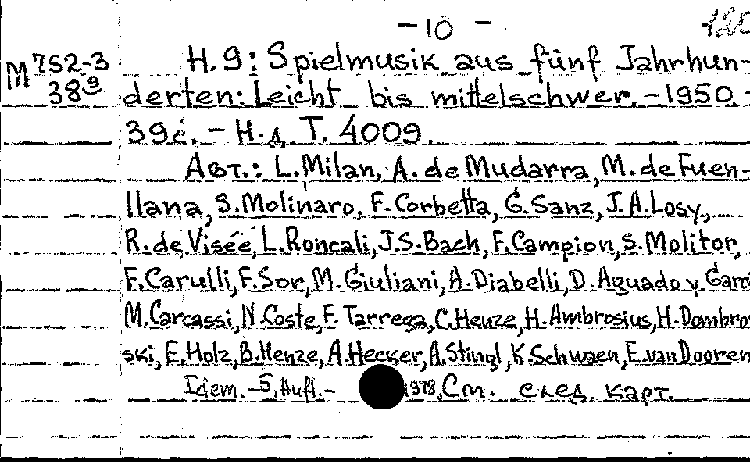 - 10 -
M 752-3 H. 9: Spielmusik aus fünf Jahrhun-
389 derten: Leicht bis mittelschwer. - 1950. -
39 с. - Н. д. Т. 4009.
Авт.: L. Milan, A. de Mudarra, M. de Fuen-
llana, S. Molinaro, F. Corbetta, G. Sanz, J. A. Losy,
R. de Visée, L. Roncali, J. S. Bach, F. Campion, S. Molitor,
F. Carulli, F. Sor, M. Giuliani, A. Diabelli, D. Aguado y Garc
M. Carcassi, N. Coste, F. Tarrega, C. Henze, H. Ambrosius, H. Dombro
ski, E. Holz, B. Henze, A. Hecker, A. Stingl, K. Schwaen, E. van Dooren
Idem. - 5. Aufl. - 1978. См. след. карт.